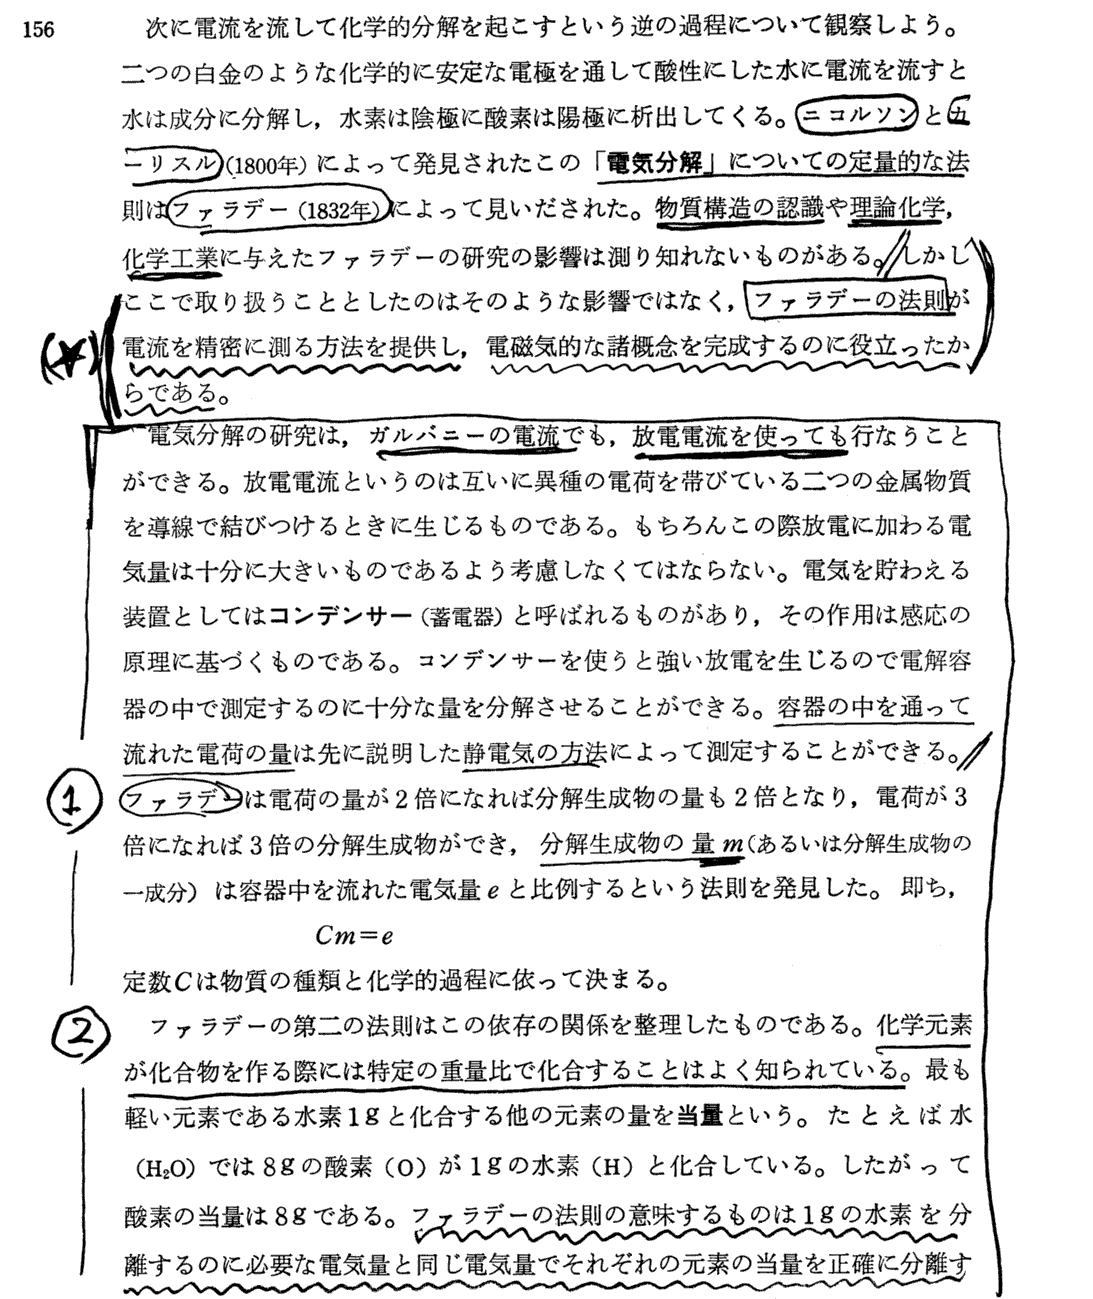 156
次に電流を流して化学的分解を起こすという逆の過程について観察しよう。
二つの白金のような化学的に安定な電極を通して酸性にした水に電流を流すと
水は成分に分解し，水素は陰極に酸素は陽極に析出してくる。ニコルソンとカ
ーリスル(1800年)によって発見されたこの「電気分解」についての定量的な法
則はファラデー（1832年）によって見いだされた。物質構造の認識や理論化学，
化学工業に与えたファラデーの研究の影響は測り知れないものがある。しかし
ここで取り扱うこととしたのはそのような影響ではなく，ファラデーの法則が
(★)
電流を精密に測る方法を提供し，電磁気的な諸概念を完成するのに役立ったか
らである。
電気分解の研究は，ガルバニーの電流でも，放電電流を使っても行なうこと
ができる。放電電流というのは互いに異種の電荷を帯びている二つの金属物質
を導線で結びつけるときに生じるものである。もちろんこの際放電に加わる電
気量は十分に大きいものであるよう考慮しなくてはならない。電気を貯わえる
装置としてはコンデンサー（蓄電器）と呼ばれるものがあり，その作用は感応の
原理に基づくものである。コンデンサーを使うと強い放電を生じるので電解容
器の中で測定するのに十分な量を分解させることができる。容器の中を通って
流れた電荷の量は先に説明した静電気の方法によって測定することができる。
①
ファラデーは電荷の量が2倍になれば分解生成物の量も2倍となり，電荷が3
倍になれば3倍の分解生成物ができ，分解生成物の量m(あるいは分解生成物の
一成分）は容器中を流れた電気量eと比例するという法則を発見した。即ち，
Cm=e
定数Cは物質の種類と化学的過程に依って決まる。
②
ファラデーの第二の法則はこの依存の関係を整理したものである。化学元素
が化合物を作る際には特定の重量比で化合することはよく知られている。最も
軽い元素である水素1gと化合する他の元素の量を当量という。たとえば水
（H₂O）では8gの酸素（O）が1gの水素（H）と化合している。したがって
酸素の当量は8gである。ファラデーの法則の意味するものは1gの水素を分
離するのに必要な電気量と同じ電気量でそれぞれの元素の当量を正確に分離す